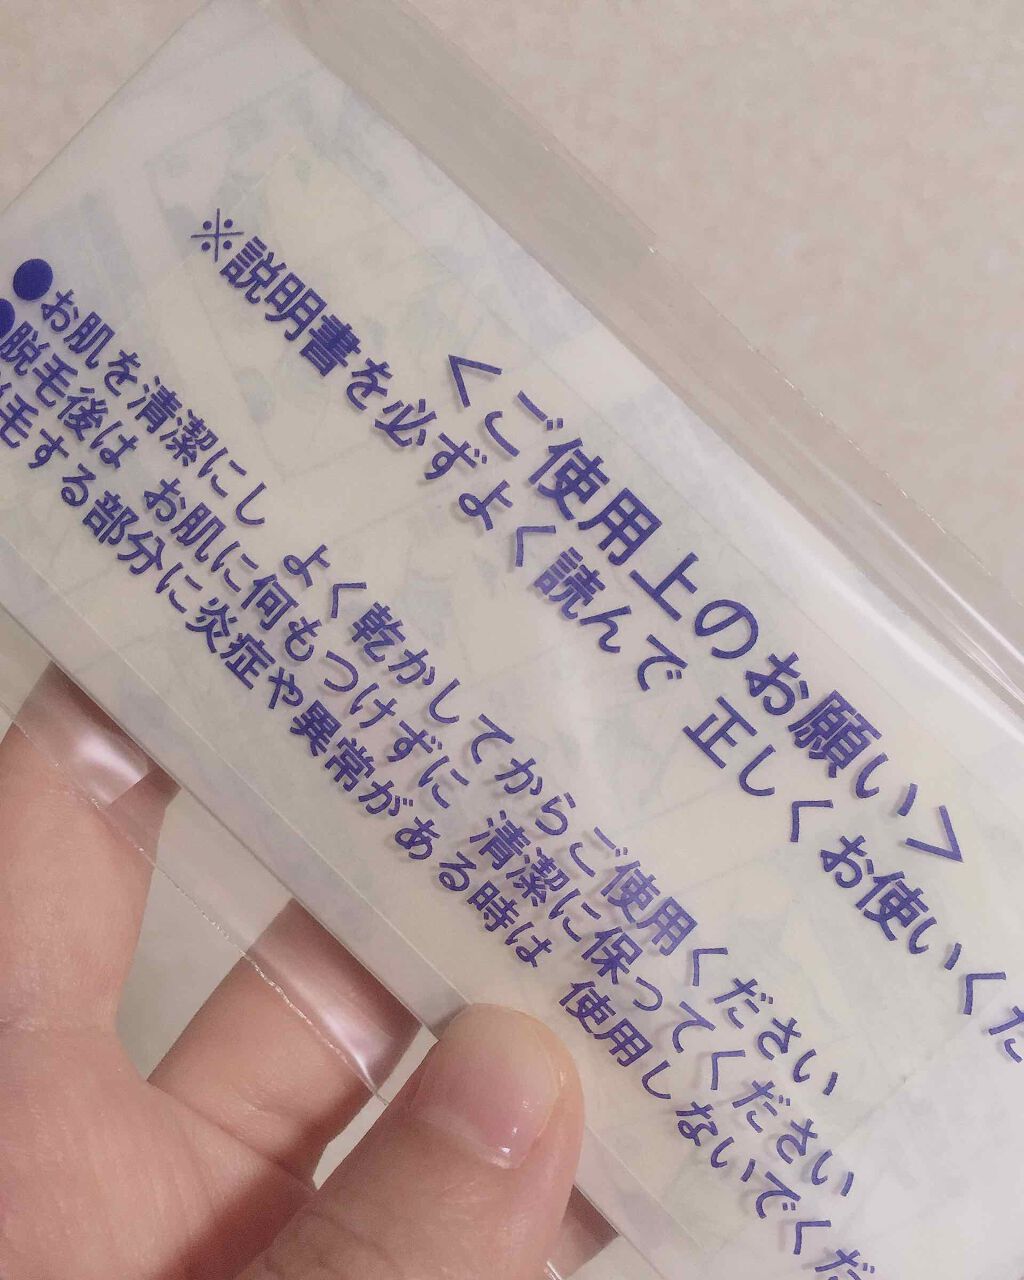 <ご使用上のお願い>
※説明書を必ずよく読んで 正しくお使いくだ
●お肌を清潔にし よく乾かしてからご使用ください
●脱毛後は お肌に何もつけずに 清潔に保ってください
毛する部分に炎症や異常がある時は 使用しないでくだ